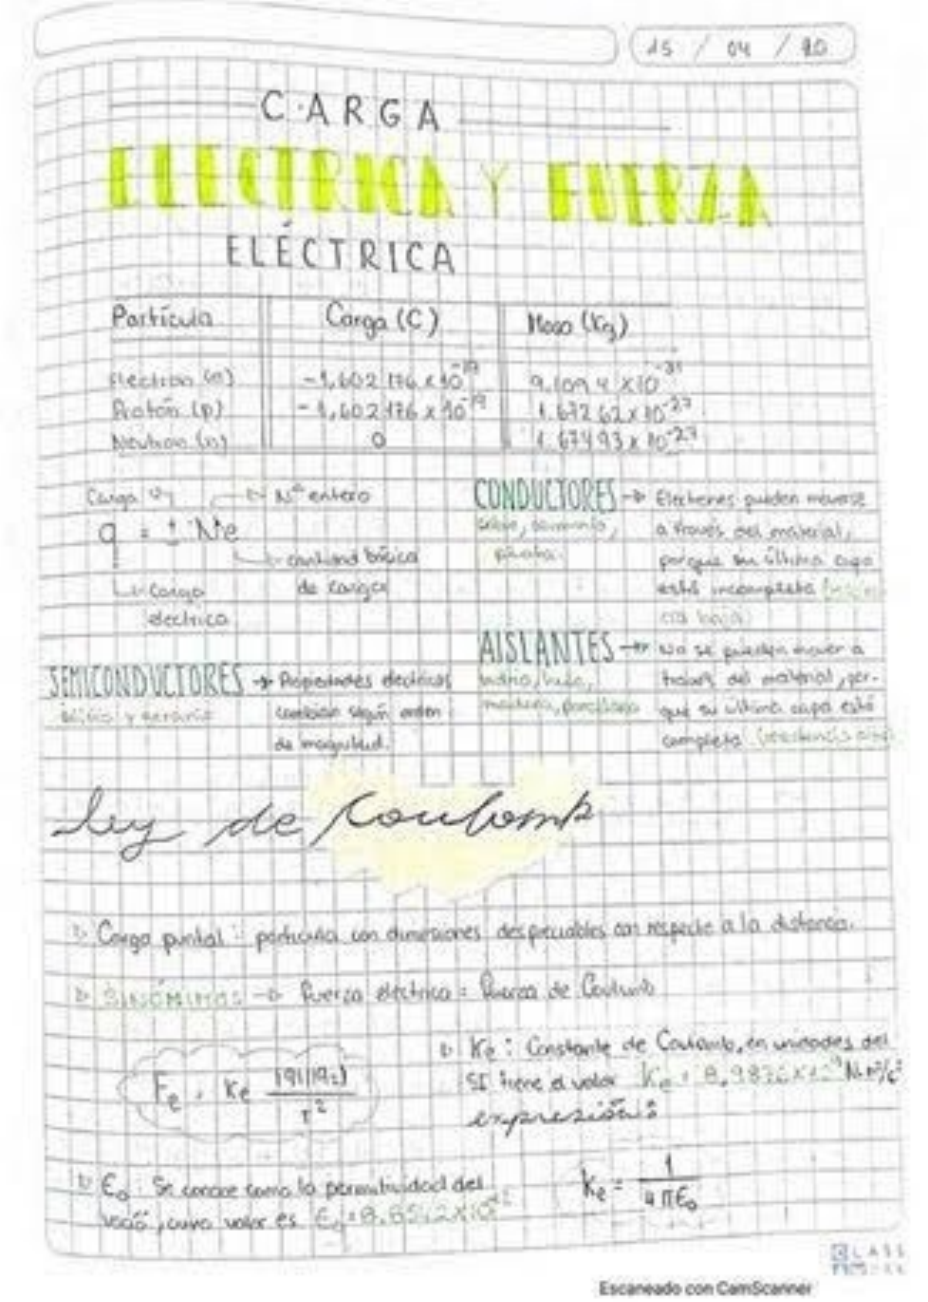 15 / 04 / 20
CARGA
ELECTRICA Y FUERZA
ELÉCTRICA
Partícula Carga (C) Masa (Kg)
Electrón (e) -1,602 176 x 10^-19 9.1094 x 10^-31
Protón (p) -1,602 176 x 10^-19 1.672 62 x 10^-27
Neutron (n) 0 1.67493 x 10^-27
Carga N° entero
q = ± Ne
cantidad básica
de carga
Carga
electrica
CONDUCTORES → Electrones pueden moverse
a través del material,
porque su última capa
está incompleta
AISLANTES → No se pueden mover a
vidrio, hule, través del material, por-
madera, porcelana que su última capa está
completa (resistencia alta)
SEMICONDUCTORES → Propiedades electricas
cambian según orden
de magnitud.
Ley de Coulomb
Carga puntal: partícula con dimensiones despreciables con respecto a la distancia.
SINÓMIMOS → Fuerza eléctrica = Fuerza de Coulomb
Ke: Constante de Coulomb, en unidades del
SI tiene el valor Ke = 8,9876x10^9 N.m²/c²
expresión:
Fe = Ke |q1||q2| / r²
ϵ₀: Se conoce como la permitividad del
vacío, cuyo valor es ϵ₀ = 8.8542x10
Ke = 1 / 4πϵ₀
CLASS
Escaneado con CamScanner